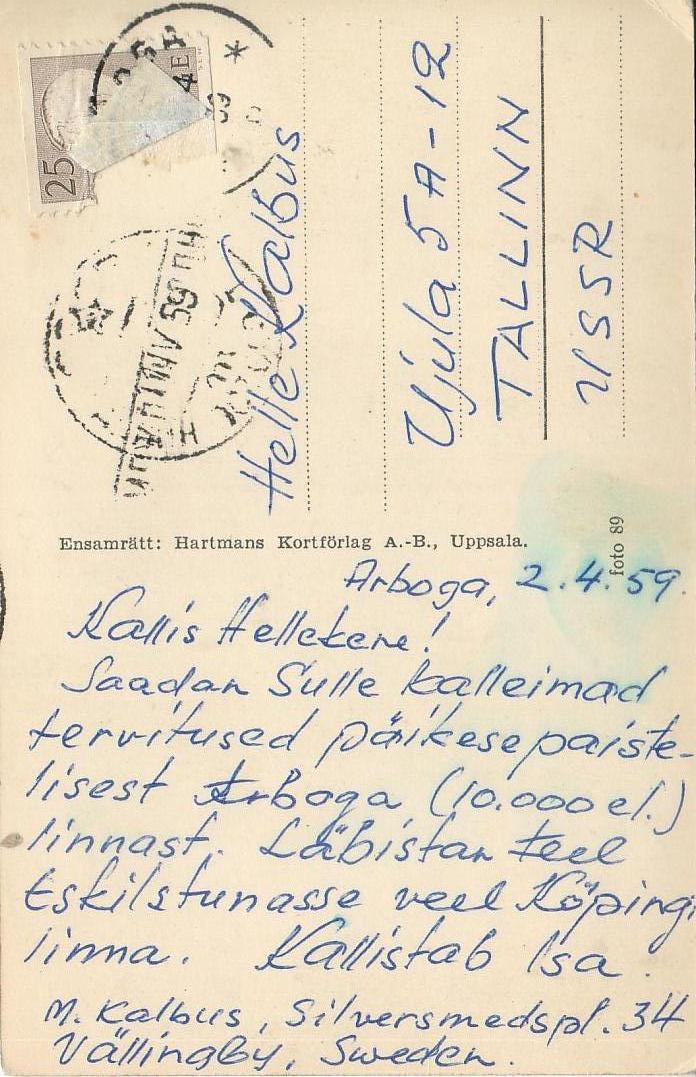 25
Helle Kalbus
Ujula 5A-12
TALLINN
USSR
Ensamrätt: Hartmans Kortförlag A.-B., Uppsala.
foto 89
Arboga, 2.4.59.
Kallis Hellekene!
Saadan Sulle kalleimad
tervitused päikesepaiste-
lisest Arboga (10.000 el.)
linnast. Läbistan teel
Eskilstunasse veel Köping
linna. Kallistab Isa.
M. Kalbus, Silversmedspl. 34
Vällingby, Sweden.